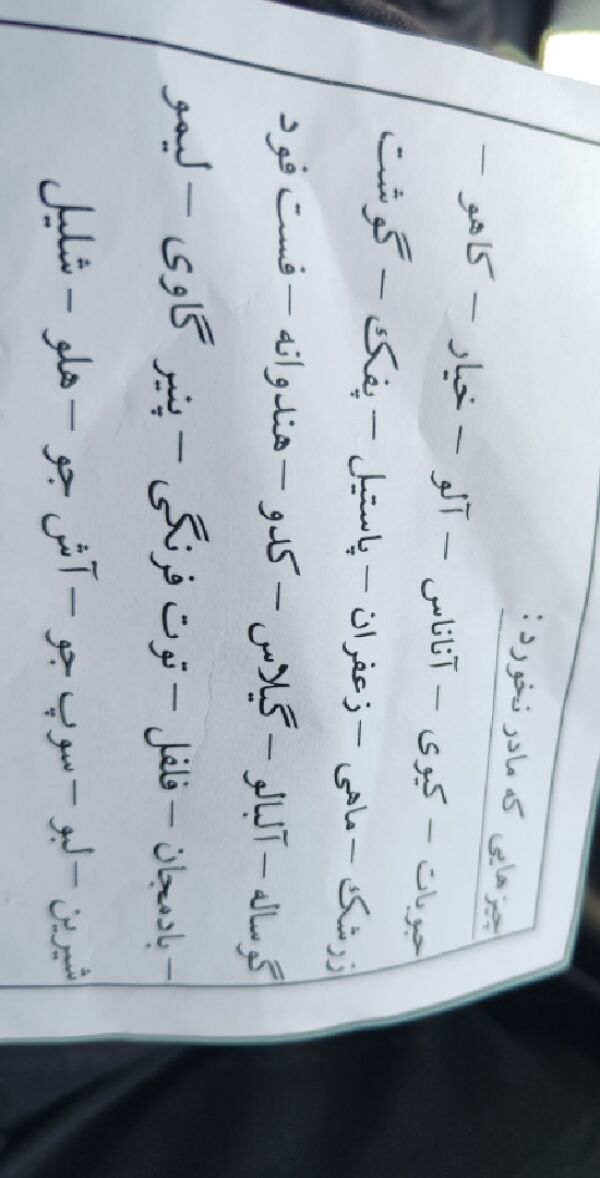 چیزهایی که مادر نخورد:
حبوبات – کیوی – آناناس – آلو – خیار – کاهو –
زرشک – ماهی – زعفران – پاستیل – پفک – گوشت
گوساله – آلبالو – گیلاس – کدو – هندوانه – فست فود
– بادمجان – فلفل – توت فرنگی – پنیر گاوی – لیمو
شیرین – لبو – سوپ جو – آش جو – هلو – شلیل